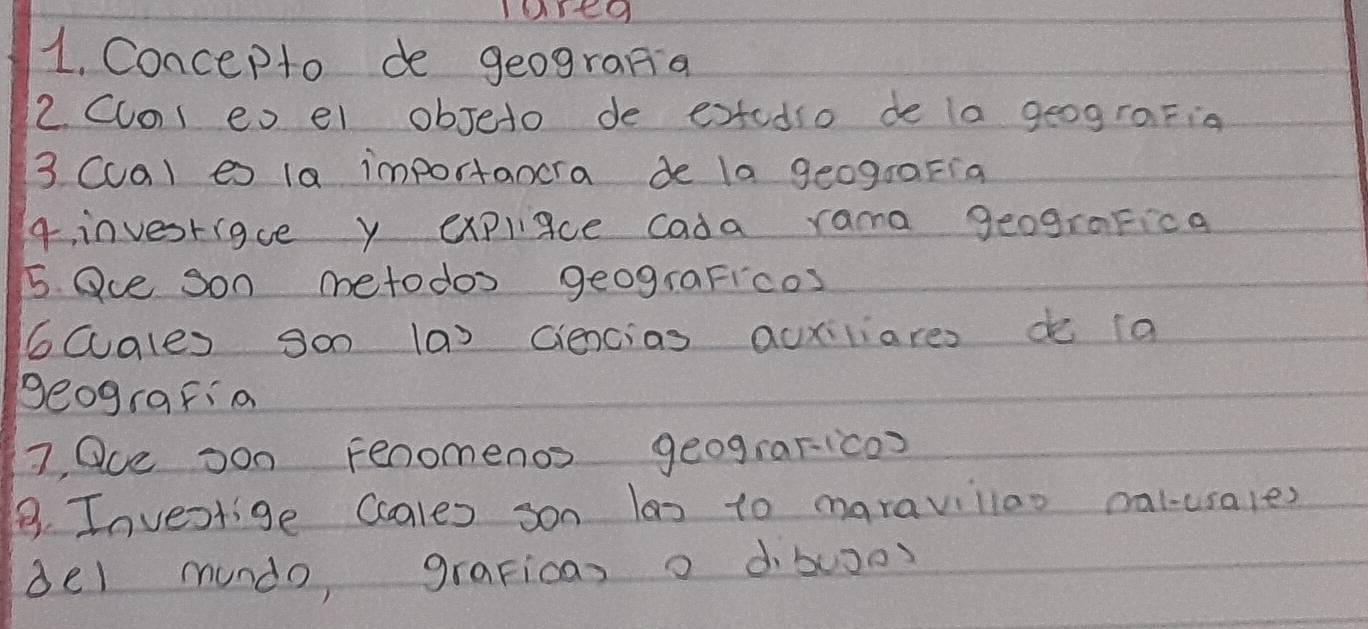 Tarea
1. Concepto de geografia
2. Cual es el objeto de estudio de la geografia
3 Cual es la importancia de la geografia
4. investigue y explique cada rama geografica
5. Que son metodos geograficos
6 Cuales son las ciencias auxiliares de la
geografia
7. Que son fenomenos geograficos
8. Investige Cuales son las 10 maravillas naturales
del mundo, graficas o dibujos